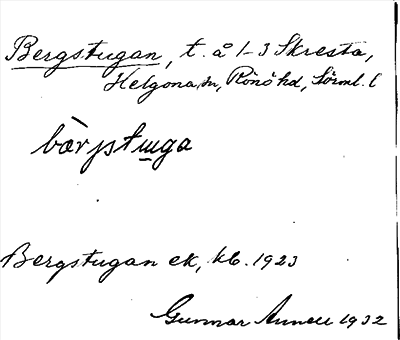 Bergstugan, t. å 1-3 Skresta,
Helgona sn, Rönö hd, Sörml. l
bärjstɯga
Bergstugan ek, kb. 1923
Gunnar Annell 1932